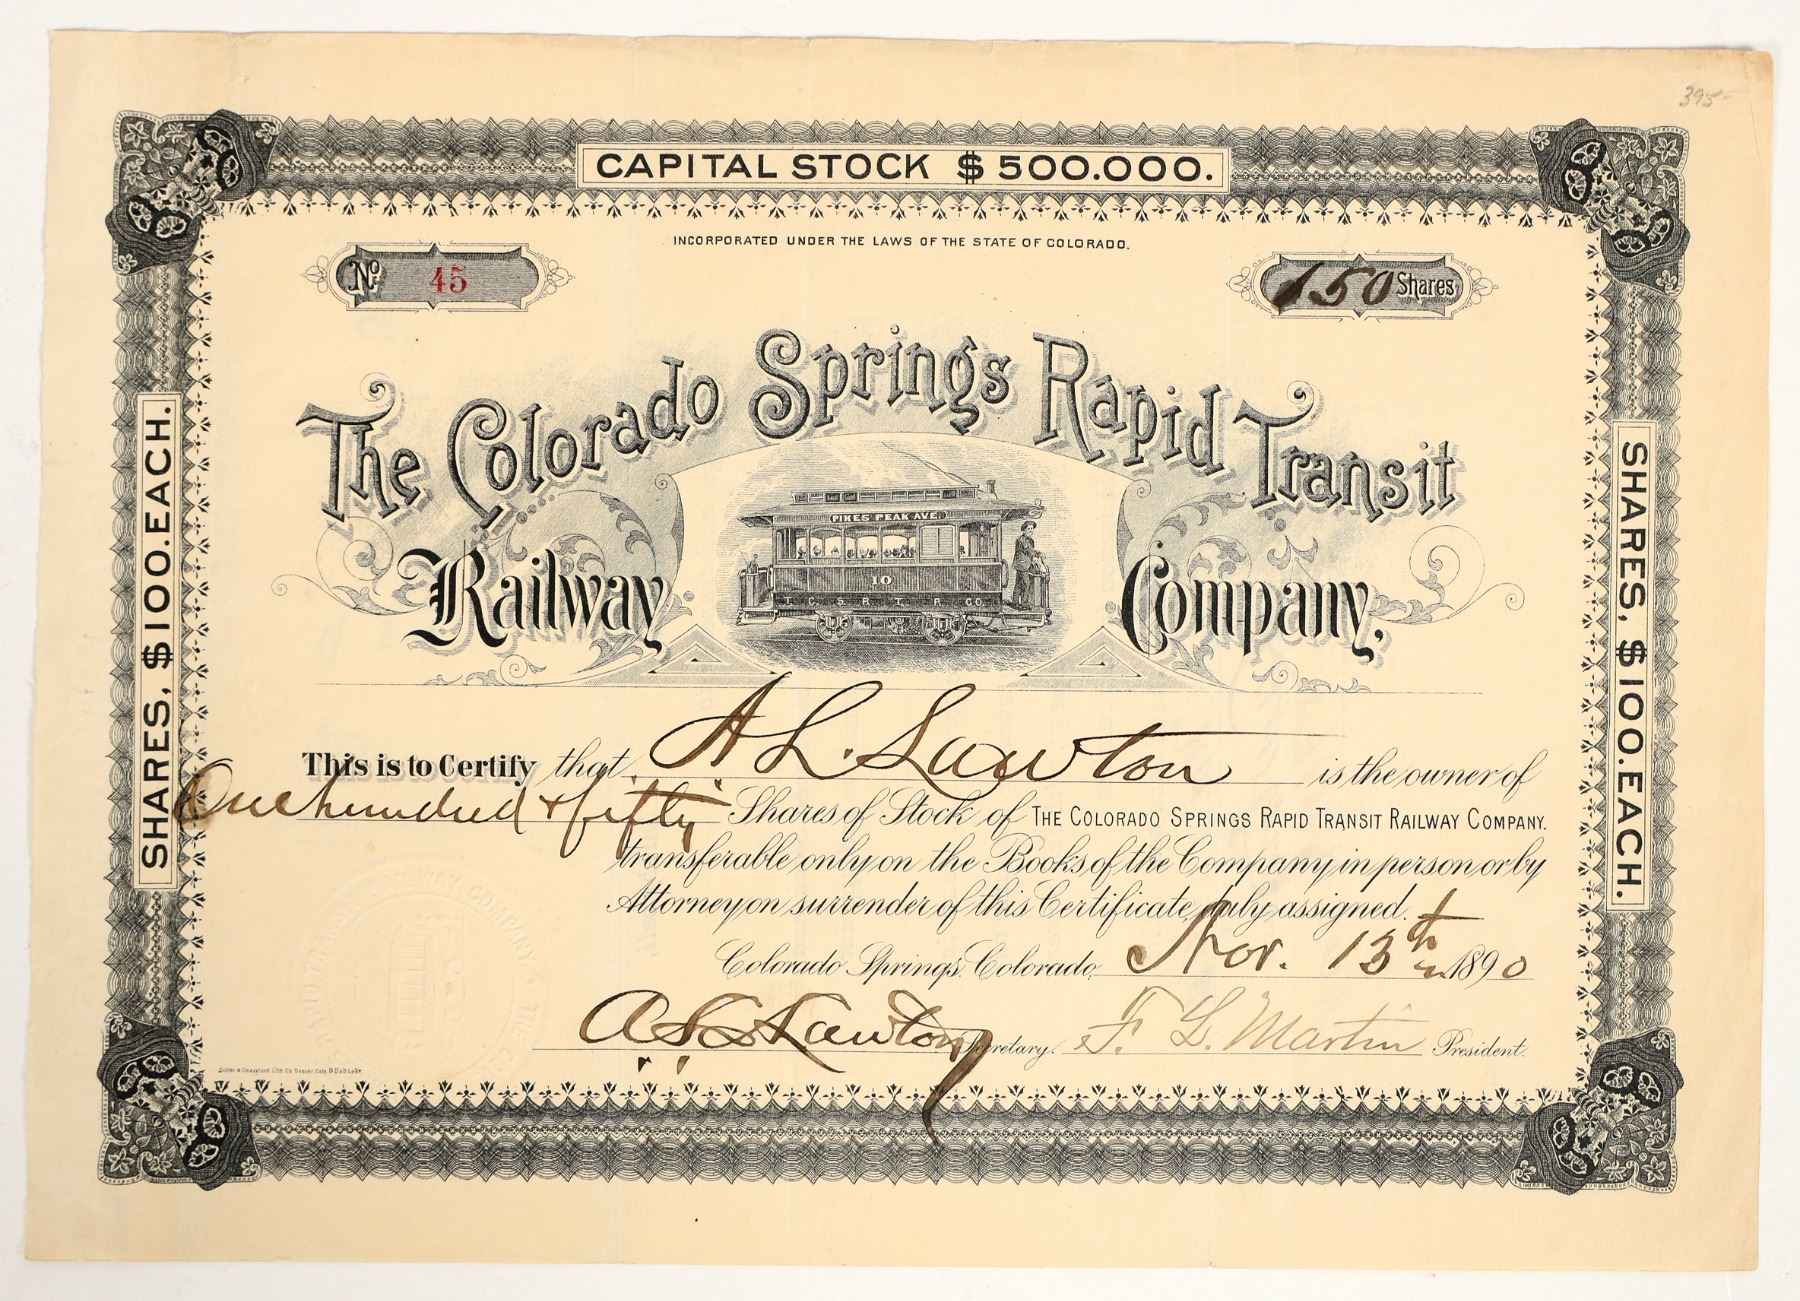 395-
CAPITAL STOCK $500.000.
INCORPORATED UNDER THE LAWS OF THE STATE OF COLORADO.
No. 45
150 Shares
The Colorado Springs Rapid Transit
Railway Company,
PIKES PEAK AVE.
10
SHARES, $100. EACH.
SHARES, $100. EACH.
This is to Certify that A L. Lawton is the owner of
One hundred & fifty Shares of Stock of THE COLORADO SPRINGS RAPID TRANSIT RAILWAY COMPANY.
transferable only on the Books of the Company in person or by
Attorney on surrender of this Certificate duly assigned.
Colorado Springs, Colorado, Nov. 13th 1890
Lawton Secretary. F. L. Martin President.
RAILWAY COMPANY